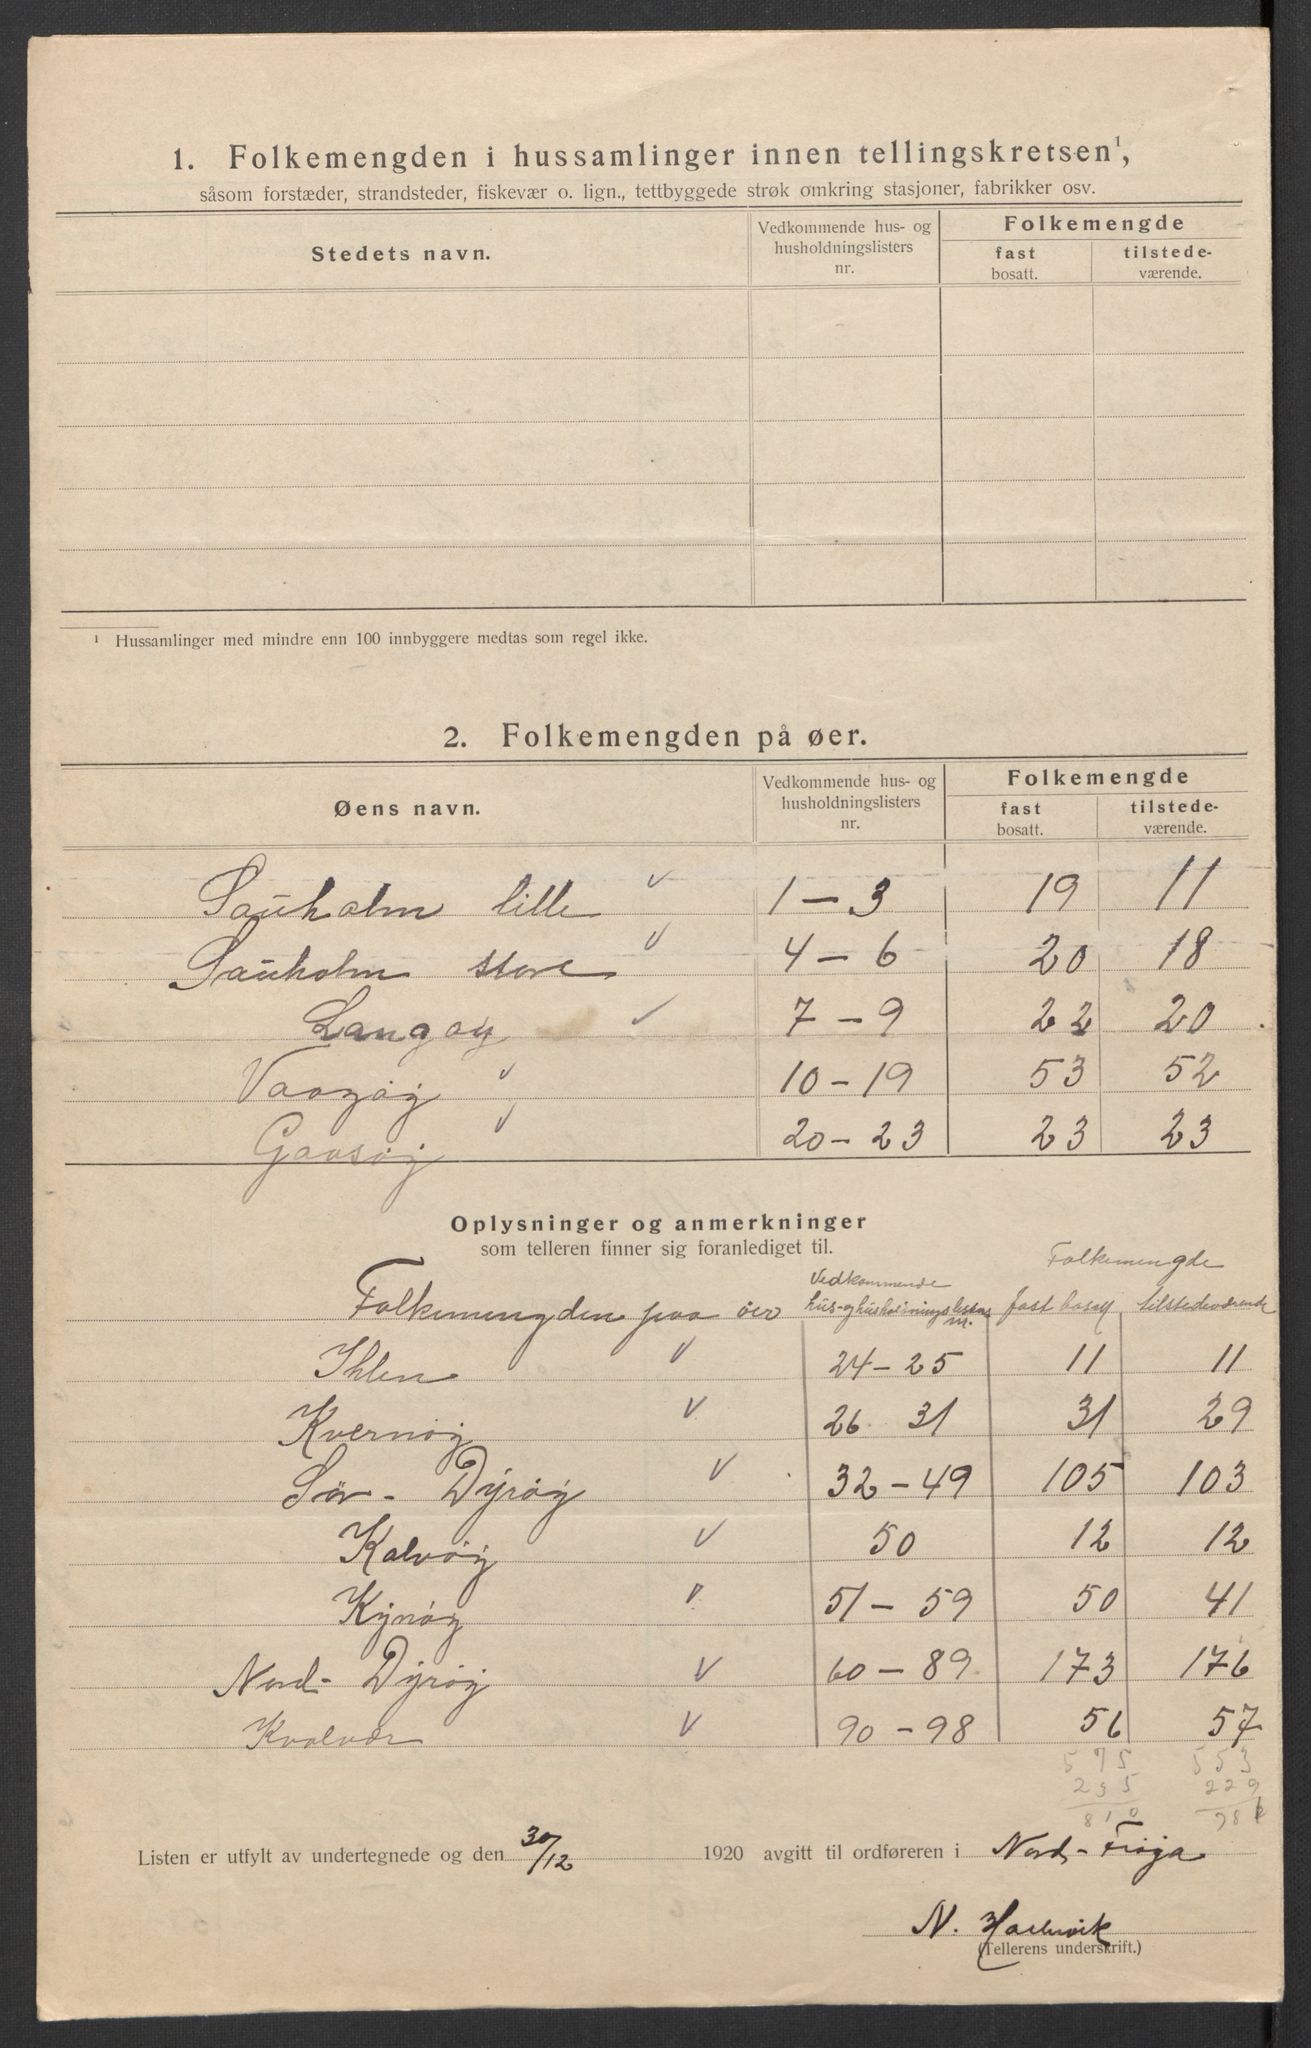 1. Folkemengden i hussamlinger innen tellingskretsen¹,
såsom forstæder, strandsteder, fiskevær o. lign., tettbyggede strøk omkring stasjoner, fabrikker osv.
Stedets navn. Vedkommende hus- og husholdningslisters nr. Folkemengde fast bosatt. tilstede-værende.
¹ Hussamlinger med mindre enn 100 innbyggere medtas som regel ikke.
2. Folkemengden på øer.
Øens navn. Vedkommende hus- og husholdningslisters nr. Folkemengde fast bosatt. tilstede-værende.
Sauholm lille 1 – 3 19 11
Sauholm store 4 – 6 20 18
Langøy 7 – 9 22 20
Vaagøy 10 – 19 53 52
Gaasøy 20 – 23 23 23
Oplysninger og anmerkninger
som telleren finner sig foranlediget til.
Folkemengden paa øer Vedkommende hus- og husholdningslisters nr. Folkemengde fast bosatt tilstedeværende
Ihlen 24 – 25 11 11
Kvernøy 26 31 31 29
Sør - Dyrøy 32 – 49 105 103
Kalvøy 50 12 12
Kynøy 51 – 59 50 41
Nord - Dyrøy 60 – 89 173 176
Kvalvær 90 – 98 56 57
575 553
235 229
810
Listen er utfylt av undertegnede og den 30/12 1920 avgitt til ordføreren i Nord - Frøya
N.
(Tellerens underskrift.)